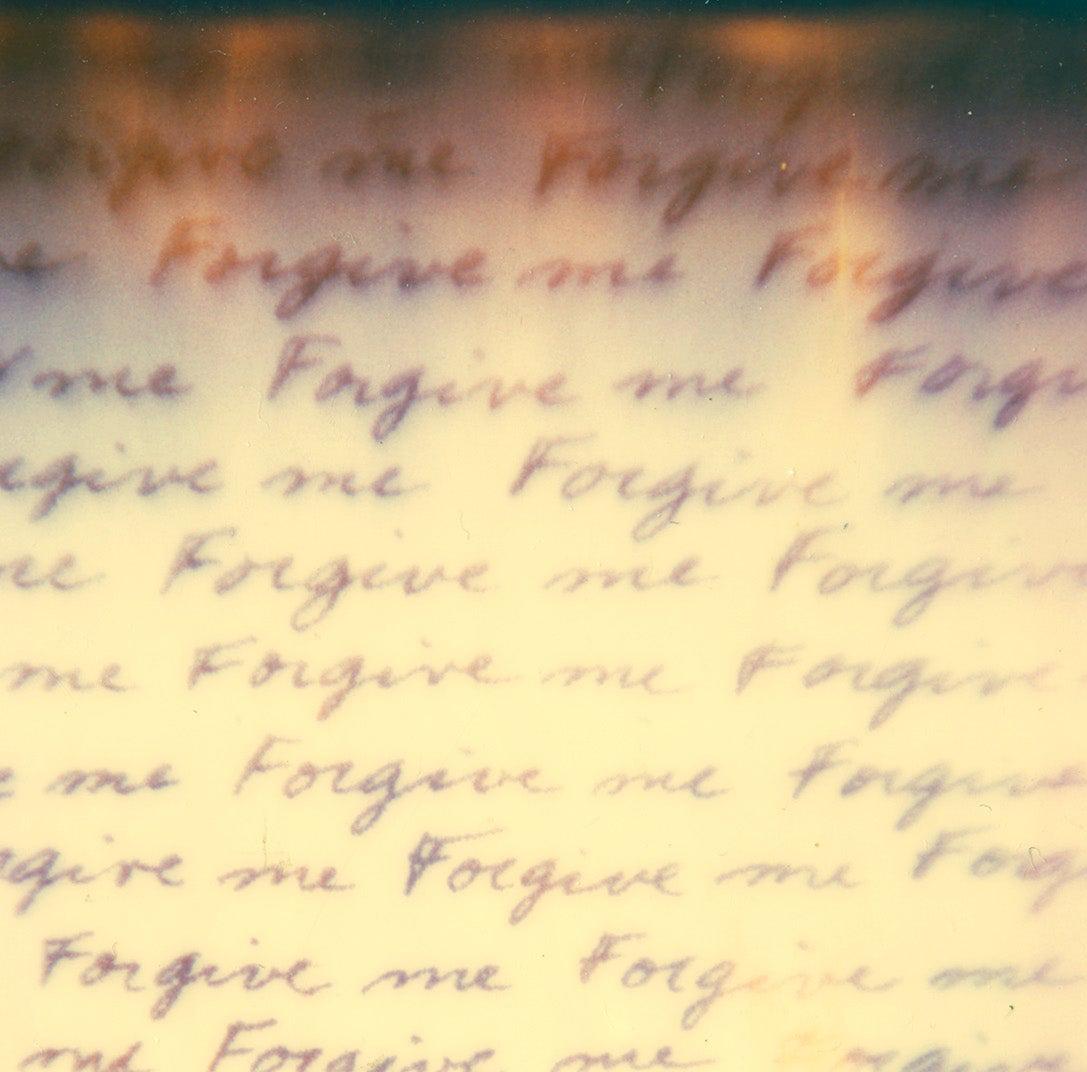 me Forgive me
Forgive me Forgive
me Forgive me Forgi
rgive me Forgive me
me Forgive me Forgive
me Forgive me Forgive
me Forgive me Forgive
rgive me Forgive me Forg
Forgive me Forgive me
me Forgive me